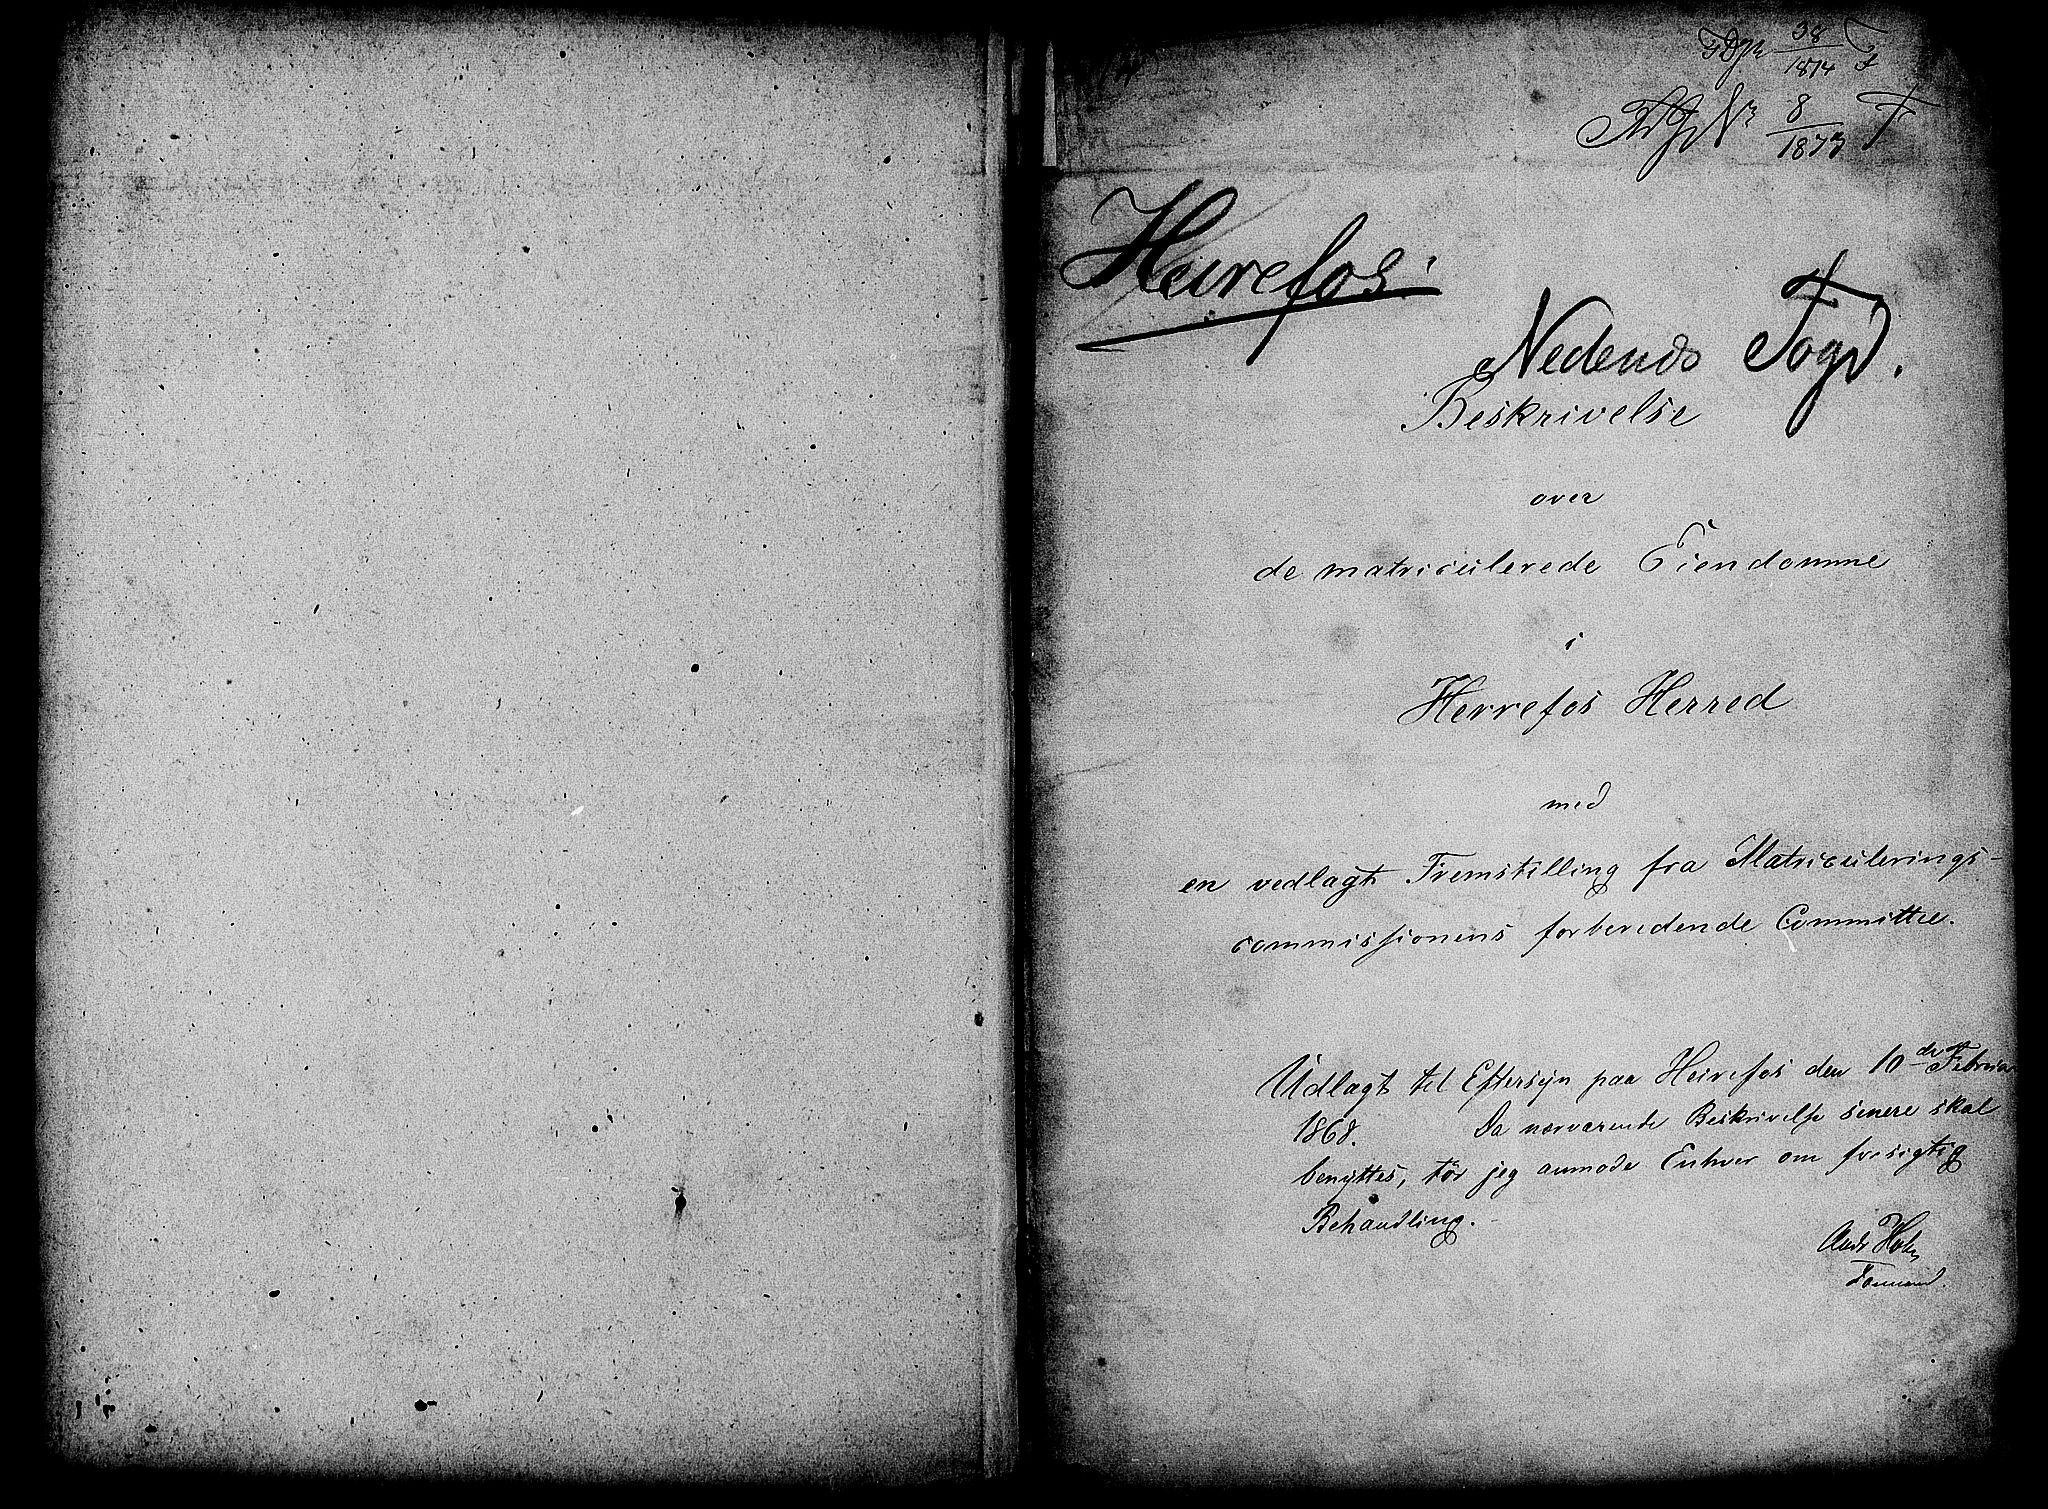 38
1874
No 8
1873
Heirefos.
Nedends Fogd.
Beskrivelse
over
de matriculerede Eiendomme
i
Herrefos Herred
med
en vedlagt Fremstilling fra Matriculerings-
commissionens forberedende Committee.
Udlagt til Eftersyn paa Heirefos den 10de Februar
1868. Da nærværende Beskrivelse senere skal
benyttes, tør jeg anmode Enhver om forsigtig
Behandling.